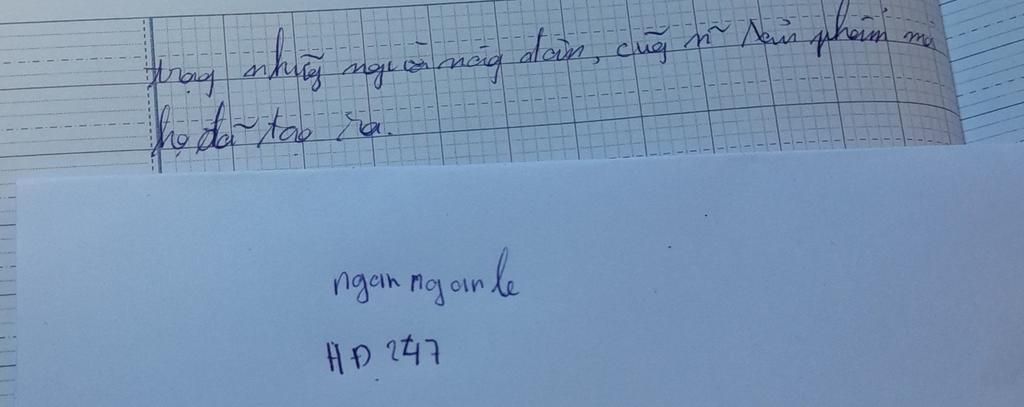 trọng những người nông dân, cũng như sản phẩm mà
họ đã tạo ra.
ngan ngan le
HD 247